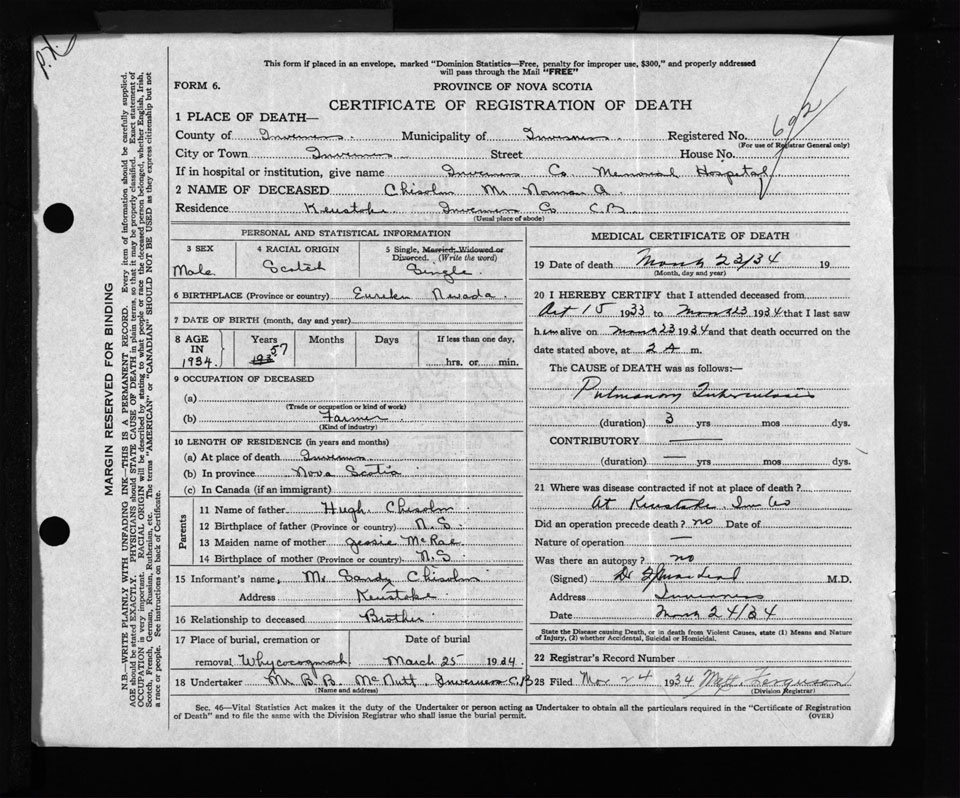 P.H.
This form if placed in an envelope, marked "Dominion Statistics—Free, penalty for improper use, $300," and properly addressed
will pass through the Mail "FREE"
FORM 6.
PROVINCE OF NOVA SCOTIA
CERTIFICATE OF REGISTRATION OF DEATH
1 PLACE OF DEATH—
County of Inverness Municipality of Inverness Registered No. 692
(For use of Registrar General only)
City or Town Inverness Street House No.
If in hospital or institution, give name Inverness Co. Memorial Hospital
2 NAME OF DECEASED Chisolm Mr. Norman A
Residence Kewstoke Inverness Co. C.B
(Usual place of abode)
PERSONAL AND STATISTICAL INFORMATION
3 SEX
Male
4 RACIAL ORIGIN
Scotch
5 Single, Married, Widowed or
Divorced. (Write the word)
Single.
6 BIRTHPLACE (Province or country) Eureken Nevada.
7 DATE OF BIRTH (month, day and year)
8 AGE
IN
1934.
Years Months Days If less than one day,
57
hrs. or min.
9 OCCUPATION OF DECEASED
(a)
(Trade or occupation or kind of work)
(b) Farmer
(Kind of industry)
10 LENGTH OF RESIDENCE (in years and months)
(a) At place of death Inverness
(b) In province Nova Scotia
(c) In Canada (if an immigrant)
Parents
11 Name of father Hugh Chisolm
12 Birthplace of father (Province or country) N.S.
13 Maiden name of mother Jessie McRae
14 Birthplace of mother (Province or country) N.S.
15 Informant's name, Mr. Sandy Chisolm
Address Kewstoke
16 Relationship to deceased Brother
17 Place of burial, cremation or Date of burial
removal Whycocomah March 25 1934
18 Undertaker Mr B. B. McNutt Inverness C.B
(Name and address)
MEDICAL CERTIFICATE OF DEATH
19 Date of death March 23/34 19
(Month, day and year)
20 I HEREBY CERTIFY that I attended deceased from
Oct 15 1933 to March 23 1934 that I last saw
him alive on March 23 1934 and that death occurred on the
date stated above, at 2 A m.
The CAUSE of DEATH was as follows:—
Pulmonary Tuberculosis
(duration) 3 yrs mos dys.
CONTRIBUTORY —
(duration) — yrs mos dys.
21 Where was disease contracted if not at place of death?
At Kewstoke. Inv Co
Did an operation precede death? no Date of
Nature of operation —
Was there an autopsy? no
(Signed) Dr M.D.
Address Inverness
Date March 24/34
State the Disease causing Death, or in death from Violent Causes, state (1) Means and Nature
of Injury, (2) whether Accidental, Suicidal or Homicidal.
22 Registrar's Record Number
23 Filed Mar 24 1934 Matt Ferguson
(Division Registrar)
Sec. 46—Vital Statistics Act makes it the duty of the Undertaker or person acting as Undertaker to obtain all the particulars required in the "Certificate of Registration
of Death" and to file the same with the Division Registrar who shall issue the burial permit.
(OVER)
MARGIN RESERVED FOR BINDING
N.B.—WRITE PLAINLY WITH UNFADING INK—THIS IS A PERMANENT RECORD. Every item of information should be carefully supplied.
AGE should be stated EXACTLY. PHYSICIANS should STATE CAUSE OF DEATH in plain terms, so that it may be properly classified. Exact statement of
OCCUPATION is very important. RACIAL ORIGIN will be described by stating to what people or race the deceased person belonged, whether English, Irish,
Scotch, French, German, Russian, Ruthenian, etc. The terms "AMERICAN" or "CANADIAN" SHOULD NOT BE USED as they express citizenship but not
a race or people. See instructions on back of Certificate.